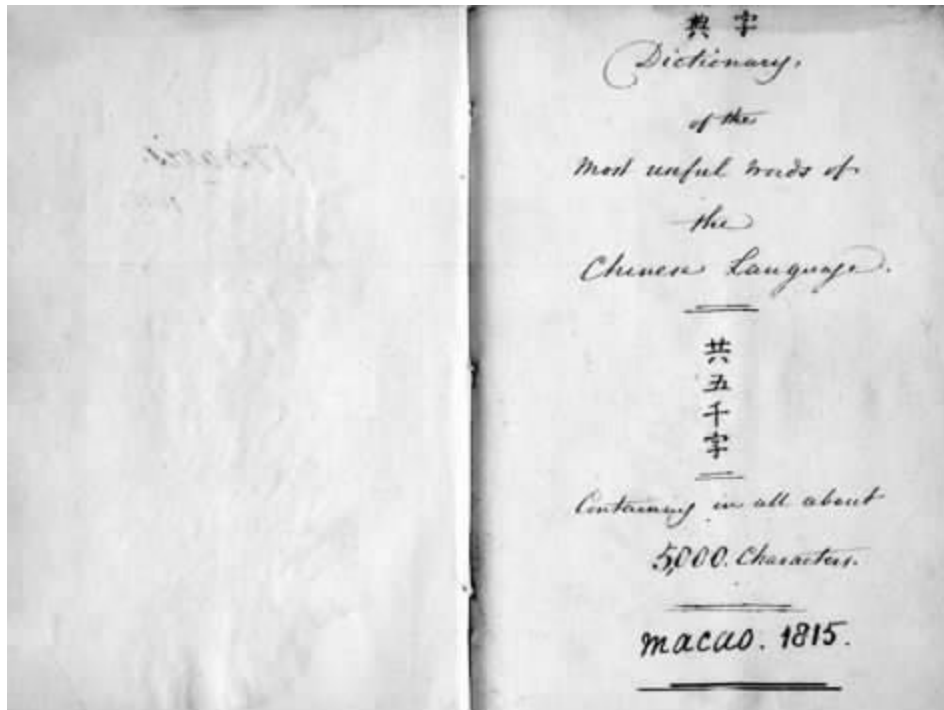 典字
Dictionary.
of the
most useful words of
the
Chinese Language.
共五千字
Containing in all about
5,000. Characters.
Macao. 1815.